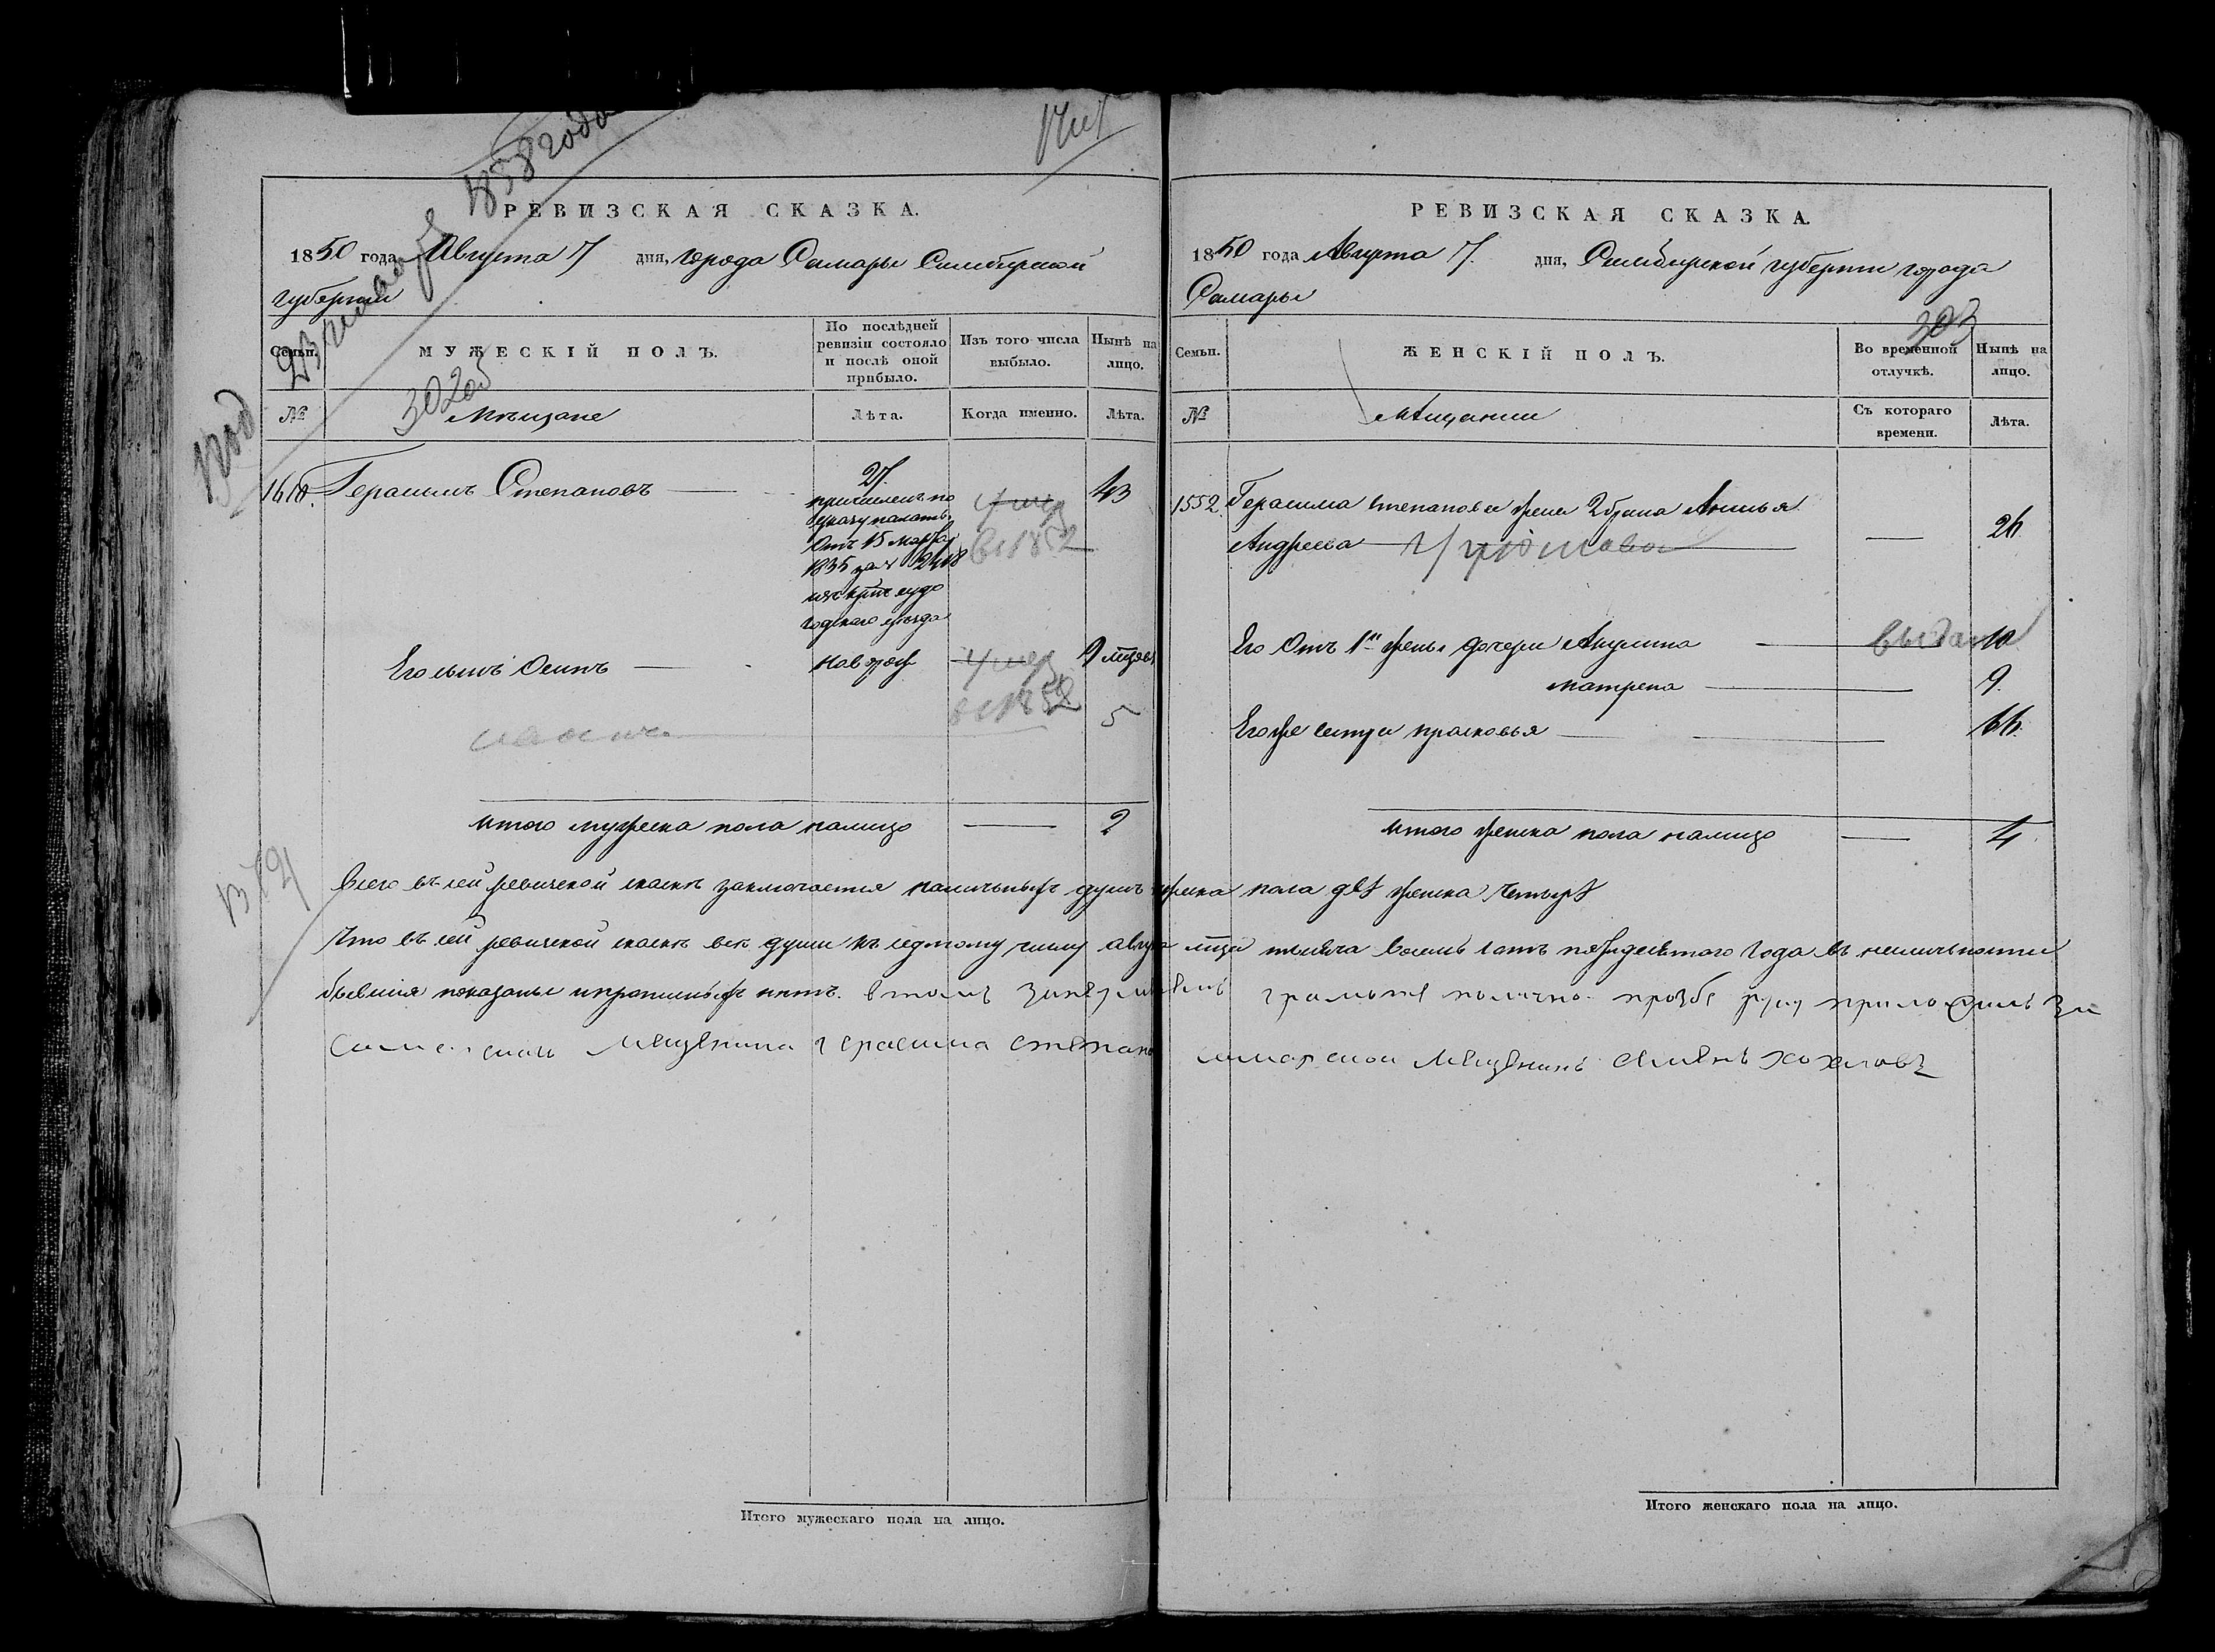 1858 года
РЕВИЗСКАЯ СКАЗКА.
1850 года Августа 7 дня, города Самары Симбирской
губернии
Семьи.
МУЖЕСКІЙ ПОЛЪ.
По послѣдней ревизіи состояло и послѣ оной прибыло.
Изъ того числа выбыло.
Нынѣ на лицо.
302об
№
Мѣщане
Лѣта.
Когда именно.
Лѣта.
1610. Герасимъ Степановъ
27.
причисленъ по
указу палаты
отъ 15 марта
1835 за №
умер
в 1852
43
уѣзда
Его сынъ Осипъ
новорож
умер
в 1852
9 мѣсяц
5
итого мужеска пола налицо 2
РЕВИЗСКАЯ СКАЗКА.
1850 года Августа 7. дня, Симбирской губернии города
Самары
303
Семьи.
ЖЕНСКІЙ ПОЛЪ.
Во временной отлучкѣ.
Нынѣ на лицо.
№
Мѣщанки
Съ котораго времени.
Лѣта.
1552. Герасима Степанова жена 2 брака Анисья
Андреева 26
Его отъ 1й жены дочери Акулина выдана 10
Матрена 9.
Его же сестра Прасковья 66.
итого женска пола налицо 4
Всего въ сей ревизской сказкѣ заключается наличныхъ душъ мужеска пола двѣ женска четыре
Что въ сей ревизской сказкѣ всѣ души къ седмому числу августа мѣсяца тысяча восемь сотъ пятьдесятого года въ наличности
бывшия показаны и прописныхъ нѣтъ. в томъ грамоте полично прозбе руку приложилъ за
мещенина герасима степано самарской мещенинъ семенъ хохловъ
Итого мужескаго пола на лицо.
Итого женскаго пола на лицо.